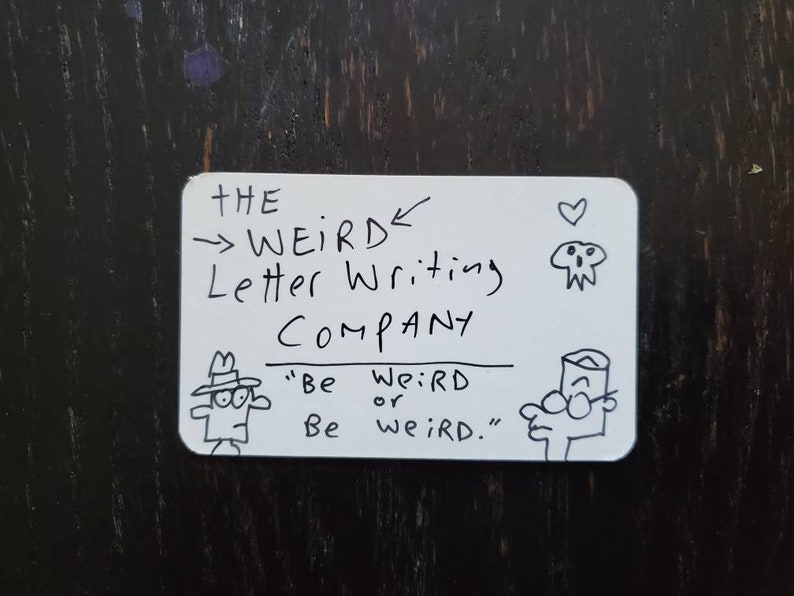 tHE
WEiRD
Letter Writing
COMPANY
"Be WeiRD
or
Be WeiRD."